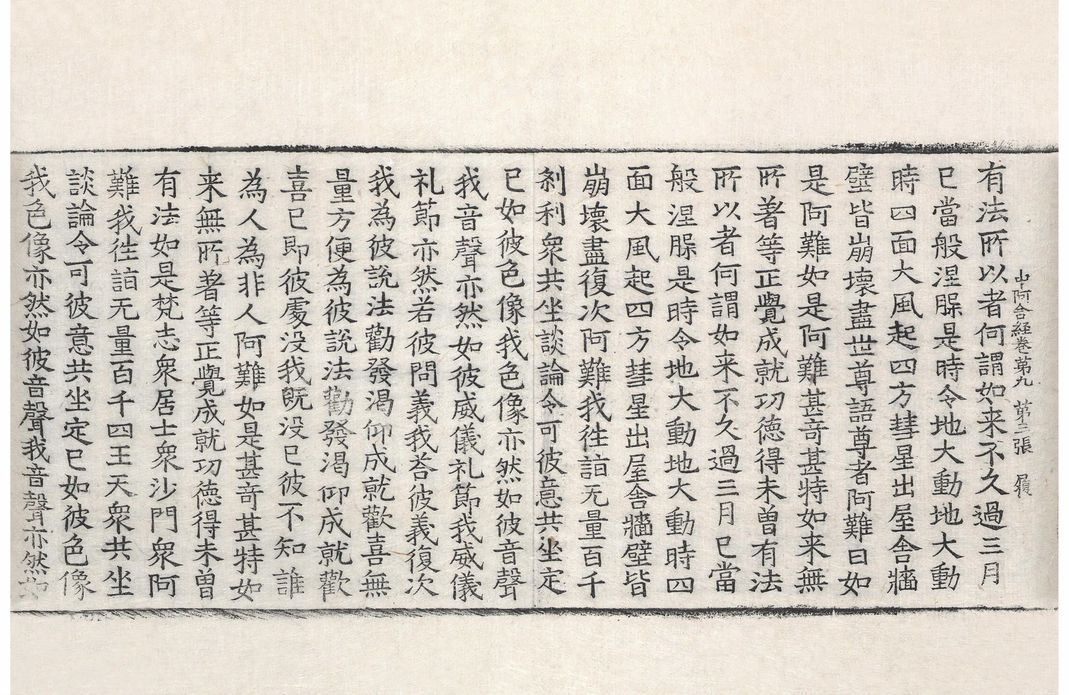 中阿含経卷第九 第三張 履
有法所以者何謂如来不久過三月
已當般涅槃是時令地大動地大動
時四面大風起四方彗星出屋舎牆
壁皆崩壞盡世尊語尊者阿難曰如
是阿難如是阿難甚奇甚特如来無
所著等正覺成就功徳得未曽有法
所以者何謂如来不久過三月已當
般涅槃是時令地大動地大動時四
面大風起四方彗星出屋舎牆壁皆
崩壞盡復次阿難我往詣无量百千
剎利衆共坐談論令可彼意共坐定
已如彼色像我色像亦然如彼音聲
我音聲亦然如彼威儀礼節我威儀
礼節亦然若彼問義我荅彼義復次
我為彼說法勸發渴仰成就歡喜無
量方便為彼說法勸發渴仰成就歡
喜已即彼處没我既没已彼不知誰
為人為非人阿難如是甚奇甚特如
来無所著等正覺成就功徳得未曽
有法如是梵志衆居士衆沙門衆阿
難我往詣无量百千四王天衆共坐
談論令可彼意共坐定已如彼色像
我色像亦然如彼音聲我音聲亦然如